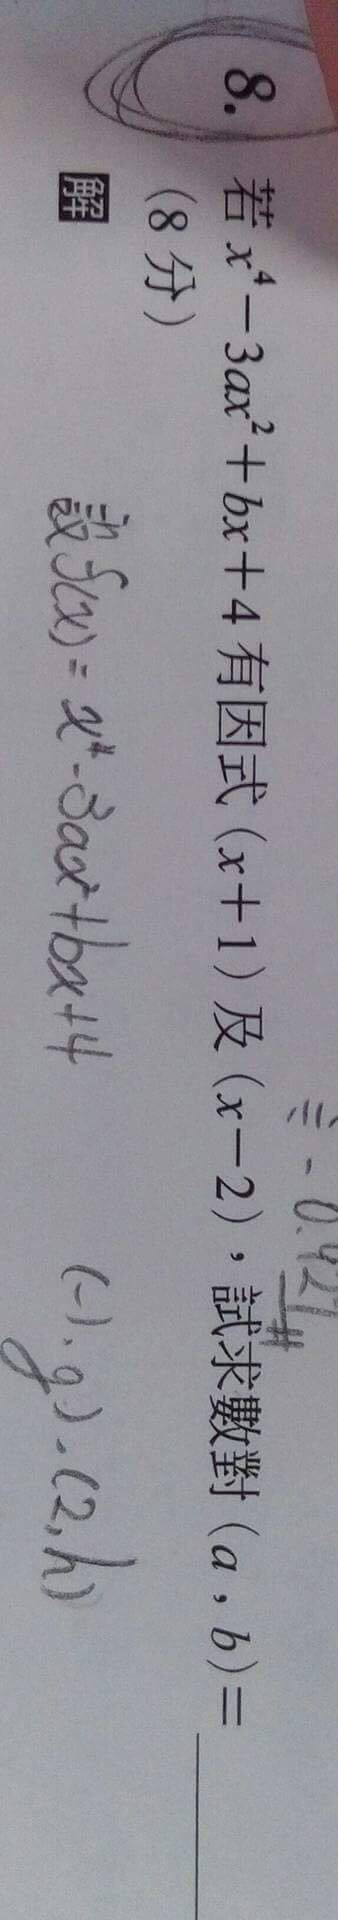 8. 若 x⁴－3ax²＋bx＋4 有因式（x＋1）及（x－2），試求數對（a，b）＝
（8 分）
解
設 f(x) = x⁴-3ax²+bx+4 (-1, g), (2, h)